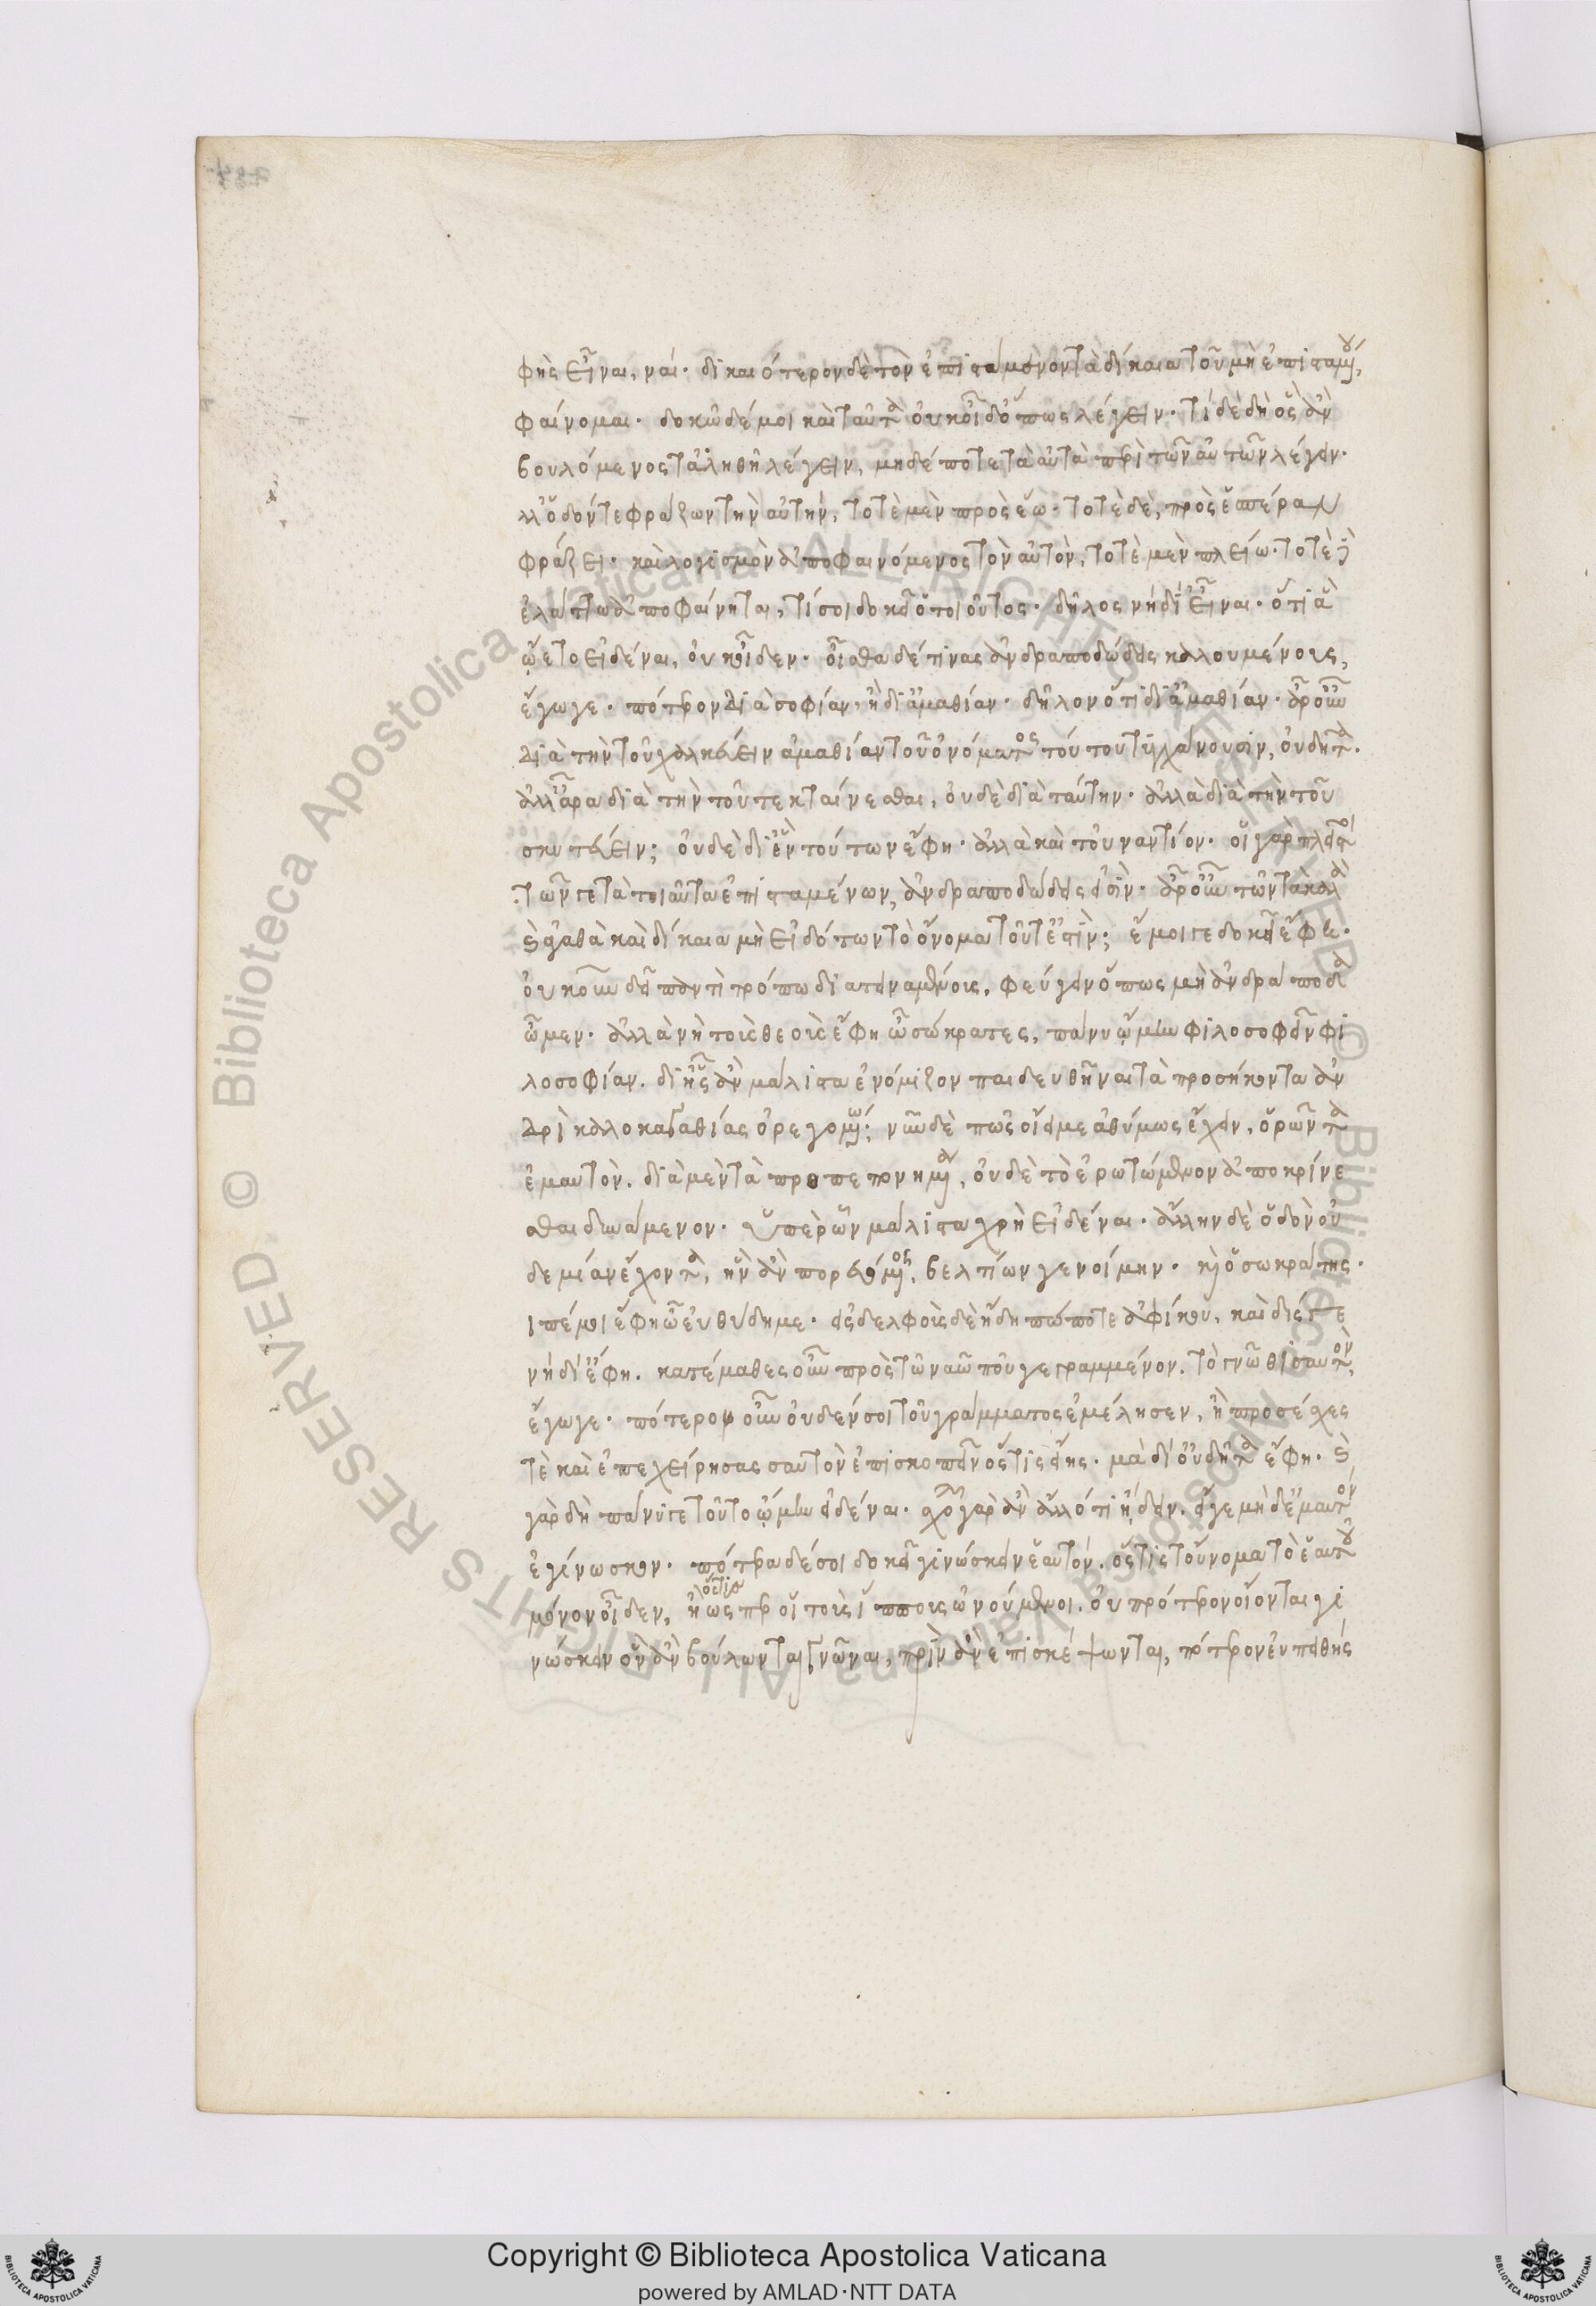 φὴς εἶναι, ναί. δικαιότερον δὲ τὸν ἐπιστάμενον τὰ δίκαια τοῦ μὴ ἐπισταμένου,
φαίνομαι. δοκῶ δέ μοι καὶ ταῦτα οὐκ οἶδ' ὅπως λέγειν. τί δὲ δὴ ὃς ἂν
βουλόμενος τἀληθῆ λέγειν, μηδέποτε τὰ αὐτὰ περὶ τῶν αὐτῶν λέγει.
ἀλλ' ὁδόν τε φράζων τὴν αὐτὴν, τοτὲ μὲν πρὸς ἕω. τοτὲ δὲ, πρὸς ἑσπέραν
φράζει. καὶ λογισμὸν ἀποφαινόμενος τὸν αὐτὸν, τοτὲ μὲν πλείω. τοτὲ δὲ
ἐλάττω ἀποφαίνηται, τί σοι δοκεῖ ὁ τοιοῦτος. δῆλος νὴ δί' εἶναι. ὅτι ἃ
ᾤετο εἰδέναι, οὐκ οἶδεν. οἶσθα δέ τινας ἀνδραποδώδεις καλουμένους,
ἔγωγε. πότερον διὰ σοφίαν, ἢ δι' ἀμαθίαν. δῆλον ὅτι δι' ἀμαθίαν. ἆρ' οὖν
διὰ τὴν τοῦ χαλκεύειν ἀμαθίαν τοῦ ὀνόματος τούτου τυγχάνουσιν, οὐδῆτα.
ἀλλ' ἆρα διὰ τὴν τοῦ τεκταίνεσθαι, οὐδὲ διὰ ταύτην. ἀλλὰ διὰ τὴν τοῦ
σκυτεύειν; οὐδὲ δι' ἓν τούτων ἔφη. ἀλλὰ καὶ τοὐναντίον. οἱ γὰρ πλεῖστοι
τῶν γε τὰ τοιαῦτα ἐπισταμένων, ἀνδραποδώδεις εἰσίν. ἆρ' οὖν τῶν τὰ καλὰ
καὶ ἀγαθὰ καὶ δίκαια μὴ εἰδότων τὸ ὄνομα τοῦτ' ἐστὶν; ἔμοιγε δοκεῖ ἔφη.
οὐκοῦν δεῖ παντὶ τρόπω διατειναμένους, φεύγειν ὅπως μὴ ἀνδράποδα
ὦμεν. ἀλλὰ νὴ τοὺς θεοὺς ἔφη ὦ σώκρατες, πάνυ ᾤμην φιλοσοφεῖν φι
λοσοφίαν. δι' ἧς ἂν μάλιστα ἐνόμιζον παιδευθῆναι τὰ προσήκοντα ἀν
δρὶ καλοκαγαθίας ὀρεγομένω; νῦν δὲ πῶς οἴει με ἀθύμως ἔχειν, ὁρῶντα
ἐμαυτὸν. διὰ μὲν τὰ προπεπονημένα, οὐδὲ τὸ ἐρωτώμενον ἀποκρίνε
σθαι δυνάμενον. ὑπὲρ ὧν μάλιστα χρὴ εἰδέναι. ἄλλην δὲ ὁδὸν οὐ
δεμίαν ἔχοντα, ἣν ἂν πορευόμενος, βελτίων γενοίμην. καὶ ὁ σωκράτης.
ιπέ μοι ἔφη ὦ εὐθύδημε. εἰς δελφοὺς δὲ ἤδη πώποτε ἀφίκου, καὶ δίς γε
νὴ δί' ἔφη. κατέμαθες οὖν πρὸς τῶ ναῶ που γεγραμμένον. τὸ γνῶθι σαυτὸν,
ἔγωγε. πότερον οὖν οὐδέν σοι τοῦ γράμματος ἐμέλησεν, ἢ προσέσχες
τὲ καὶ ἐπεχείρησας σαυτὸν ἐπισκοπεῖν ὅστις εἴης. μὰ δί' οὐδῆτα ἔφη. καὶ
γὰρ δὴ πάνυ γε τοῦτο ᾤμην εἰδέναι. σχολῇ γὰρ ἂν ἄλλό τι ᾔδειν. εἴγε μὴ δ' ἐμαυτὸν
ἐγίνωσκον. πότερα δέ σοι δοκεῖ γινώσκειν ἑαυτόν. ὅστις τοὔνομα τὸ ἑαυτοῦ
μόνον οἶδεν, ἢ ὅστις ὥσπερ οἱ τοὺς ἵππους ὠνούμενοι. οὐ πρότερον οἴονται γι
νώσκειν ὃν ἂν βούλωνται γνῶναι, πρὶν ἂν ἐπισκέψωνται, πότερον εὐπειθής
Copyright © Biblioteca Apostolica Vaticana
powered by AMLAD·NTT DATA